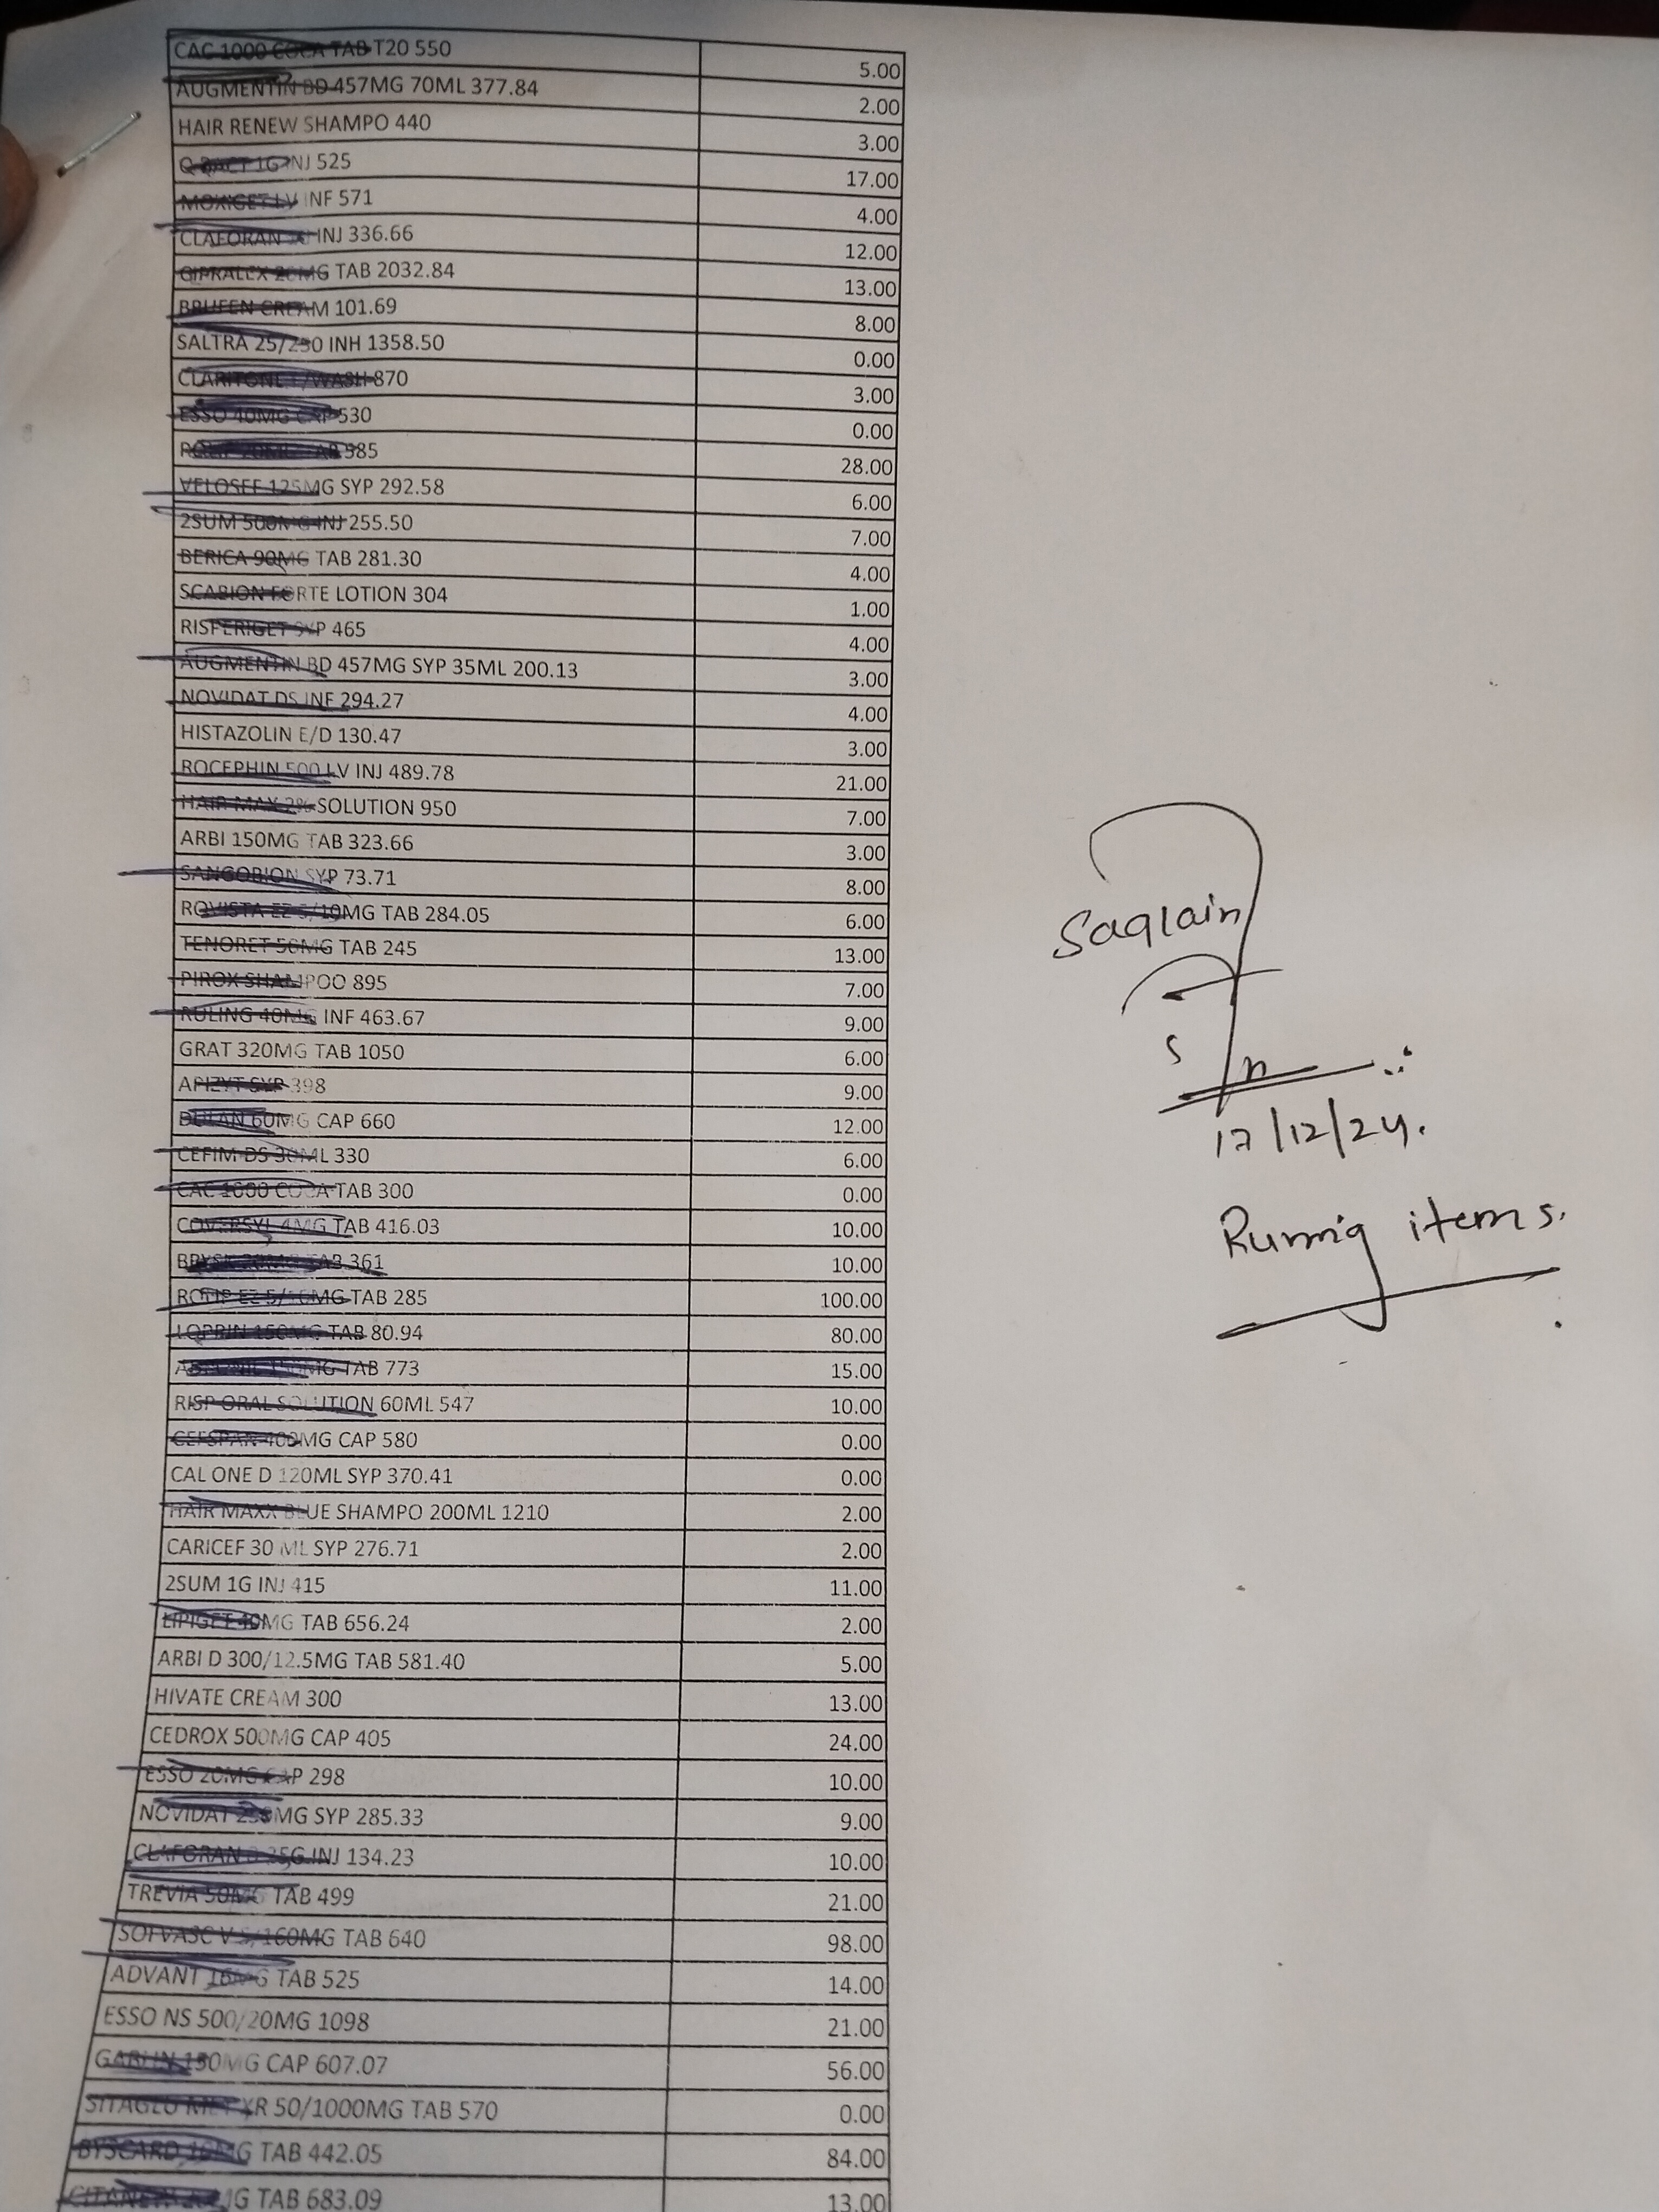 CAC 1000 COLA TAB T20 550 5.00
AUGMENTIN BD 457MG 70ML 377.84 2.00
HAIR RENEW SHAMPO 440 3.00
INJ 525 17.00
MOXIGET LV INF 571 4.00
CLAFORAN INJ 336.66 12.00
CIPRALEX 20MG TAB 2032.84 13.00
BRUFEN CREAM 101.69 8.00
SALTRA 25/250 INH 1358.50 0.00
CLARITONE F/WASH 870 3.00
ESSO 40MG CAP 530 0.00
585 28.00
VELOSEF 125MG SYP 292.58 6.00
2SUM 500MG INJ 255.50 7.00
BERICA 90MG TAB 281.30 4.00
SCABION FORTE LOTION 304 1.00
RISPERIGET SYP 465 4.00
AUGMENTIN BD 457MG SYP 35ML 200.13 3.00
NOVIDAT DS INF 294.27 4.00
HISTAZOLIN E/D 130.47 3.00
ROCEPHIN 500 LV INJ 489.78 21.00
HAIR MAX 2% SOLUTION 950 7.00
ARBI 150MG TAB 323.66 3.00
SANGOBION SYP 73.71 8.00
ROVISTA EZ 5/10MG TAB 284.05 6.00
TENORET 50MG TAB 245 13.00
PIROX SHAMPOO 895 7.00
RULING 40MG INF 463.67 9.00
GRAT 320MG TAB 1050 6.00
APIZYT SYP 398 9.00
DULAN 60MG CAP 660 12.00
CEFIM DS 30ML 330 6.00
CAC 1000 COLA TAB 300 0.00
COVERSYL 4MG TAB 416.03 10.00
TAB 361 10.00
ROTIP EZ 5/10MG TAB 285 100.00
LOPRIN 150MG TAB 80.94 80.00
TAB 773 15.00
RISP ORAL SOLUTION 60ML 547 10.00
CEFSPAN 400MG CAP 580 0.00
CAL ONE D 120ML SYP 370.41 0.00
HAIR MAXX BLUE SHAMPO 200ML 1210 2.00
CARICEF 30 ML SYP 276.71 2.00
2SUM 1G INJ 415 11.00
LIPIGET 40MG TAB 656.24 2.00
ARBI D 300/12.5MG TAB 581.40 5.00
HIVATE CREAM 300 13.00
CEDROX 500MG CAP 405 24.00
ESSO 20MG CAP 298 10.00
NOVIDAT 250MG SYP 285.33 9.00
CLAFORAN INJ 134.23 10.00
TREVIA 50MG TAB 499 21.00
SOFVASC V 5/160MG TAB 640 98.00
ADVANT 16MG TAB 525 14.00
ESSO NS 500/20MG 1098 21.00
GABLIN 150MG CAP 607.07 56.00
SITAGLU MET XR 50/1000MG TAB 570 0.00
BYSCARD 10MG TAB 442.05 84.00
TAB 683.09 13.00
Saqlain
S n
17/12/24.
Running items.